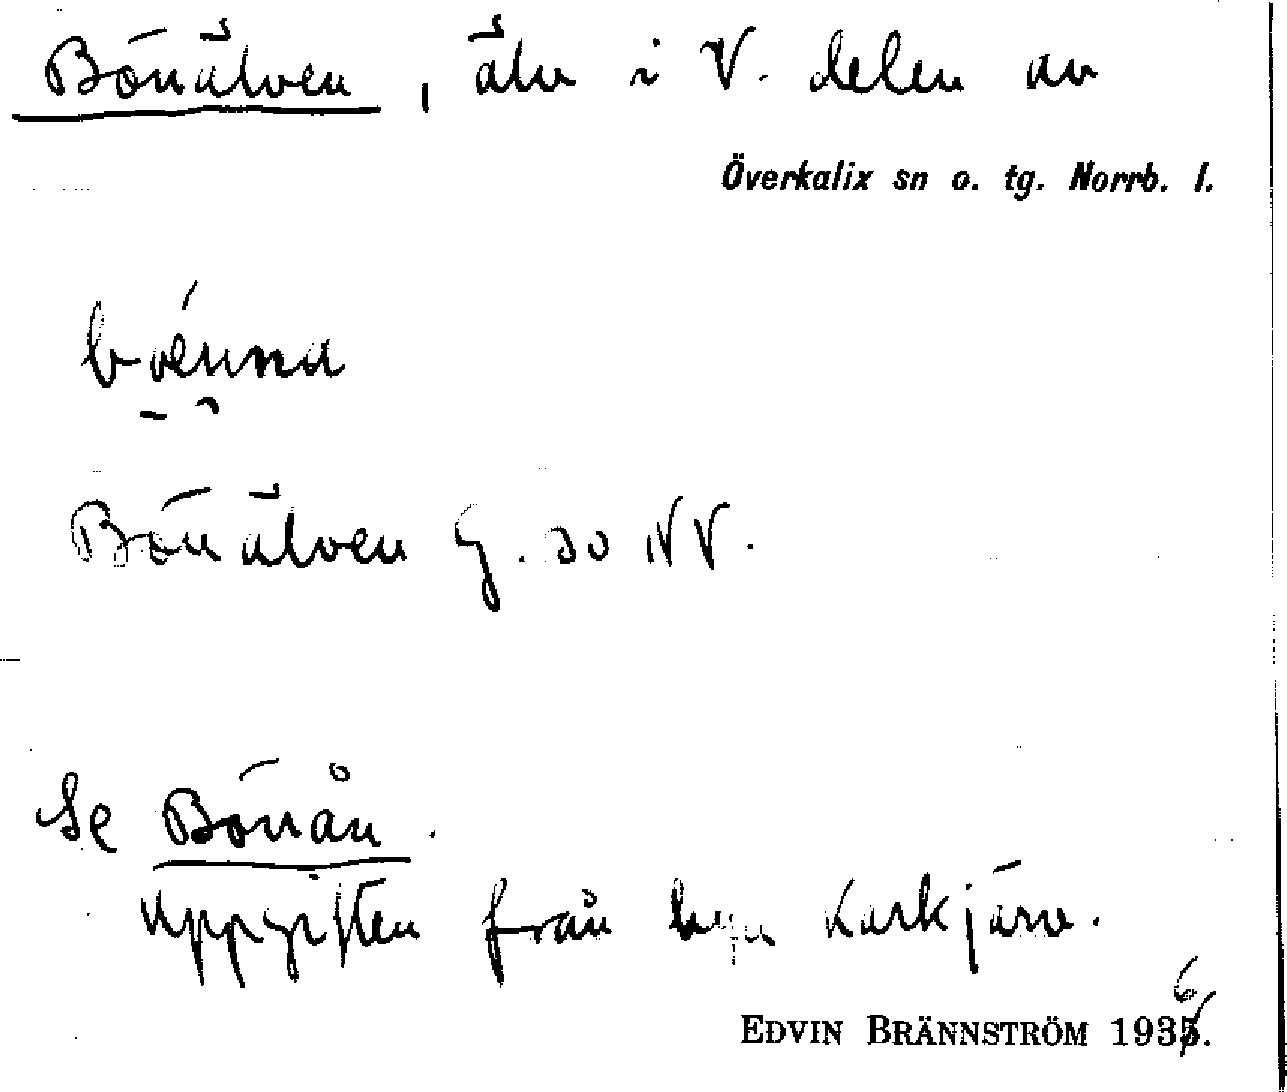 Bönälven, älv i V. delen av
Överkalix sn o. tg. Norrb. l.
Bönälven G. 30 NV.
Se Bönån.
Uppgiften från byn Karkjärv.
EDVIN BRÄNNSTRÖM 1936.